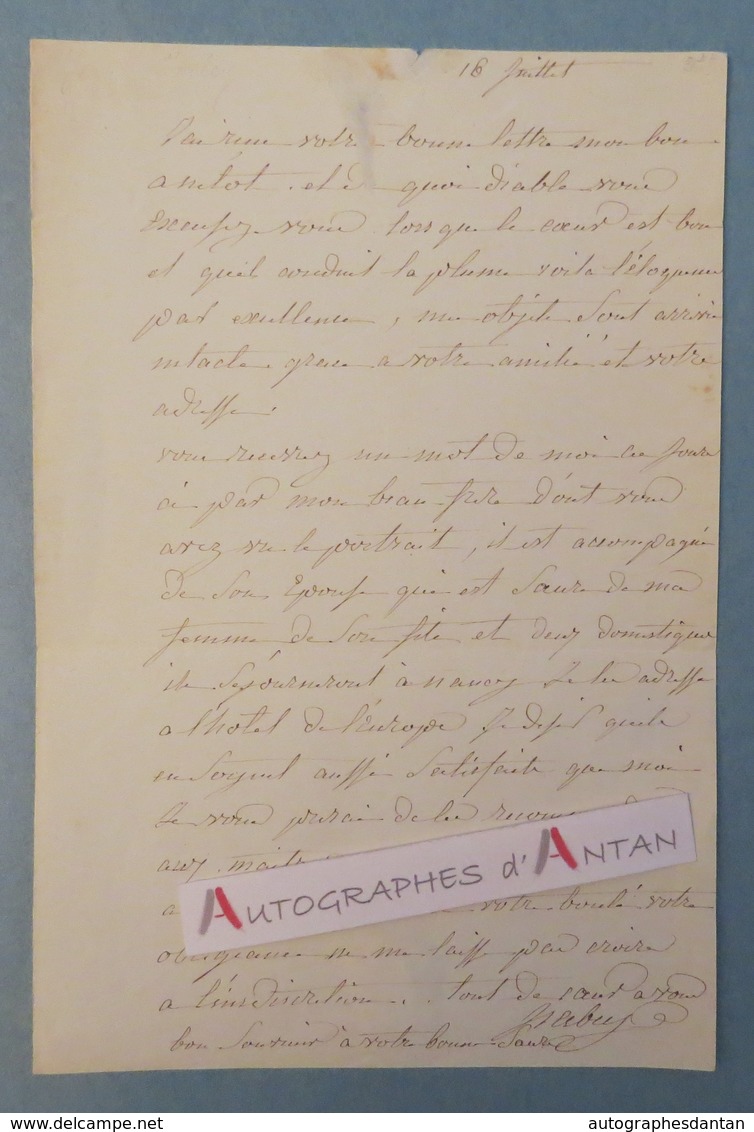 16 Juillet
J'ai recu votre bonne lettre mon bon
et à quoi diable vous
Excusez vous lorsque le cœur est bon
et quil conduit la plume voila l'éloquence
par excellence, mes objets sont arrivés
intacte grace a votre amitié et votre
adresse.
vous recevrez un mot de moi ces jours
ci par mon beau frere dont vous
avez vu le portrait, il est accompagné
de son Epouse qui est sœur de ma
femme de son fils et deux domestiques
ils séjourneront à nancy Je les adresse
a l'hotel de l'Europe Je desire quils
en soyent aussi satisfaits que moi
Je vous prierai de les
aux
a
votre bonté votre
obligeance ne me laisse pas croire
a l'indiscretion. tout de cœur a vous
Isabey
bon souvenir à votre bonne sœur
AUTOGRAPHES d'ANTAN
autographesdantan